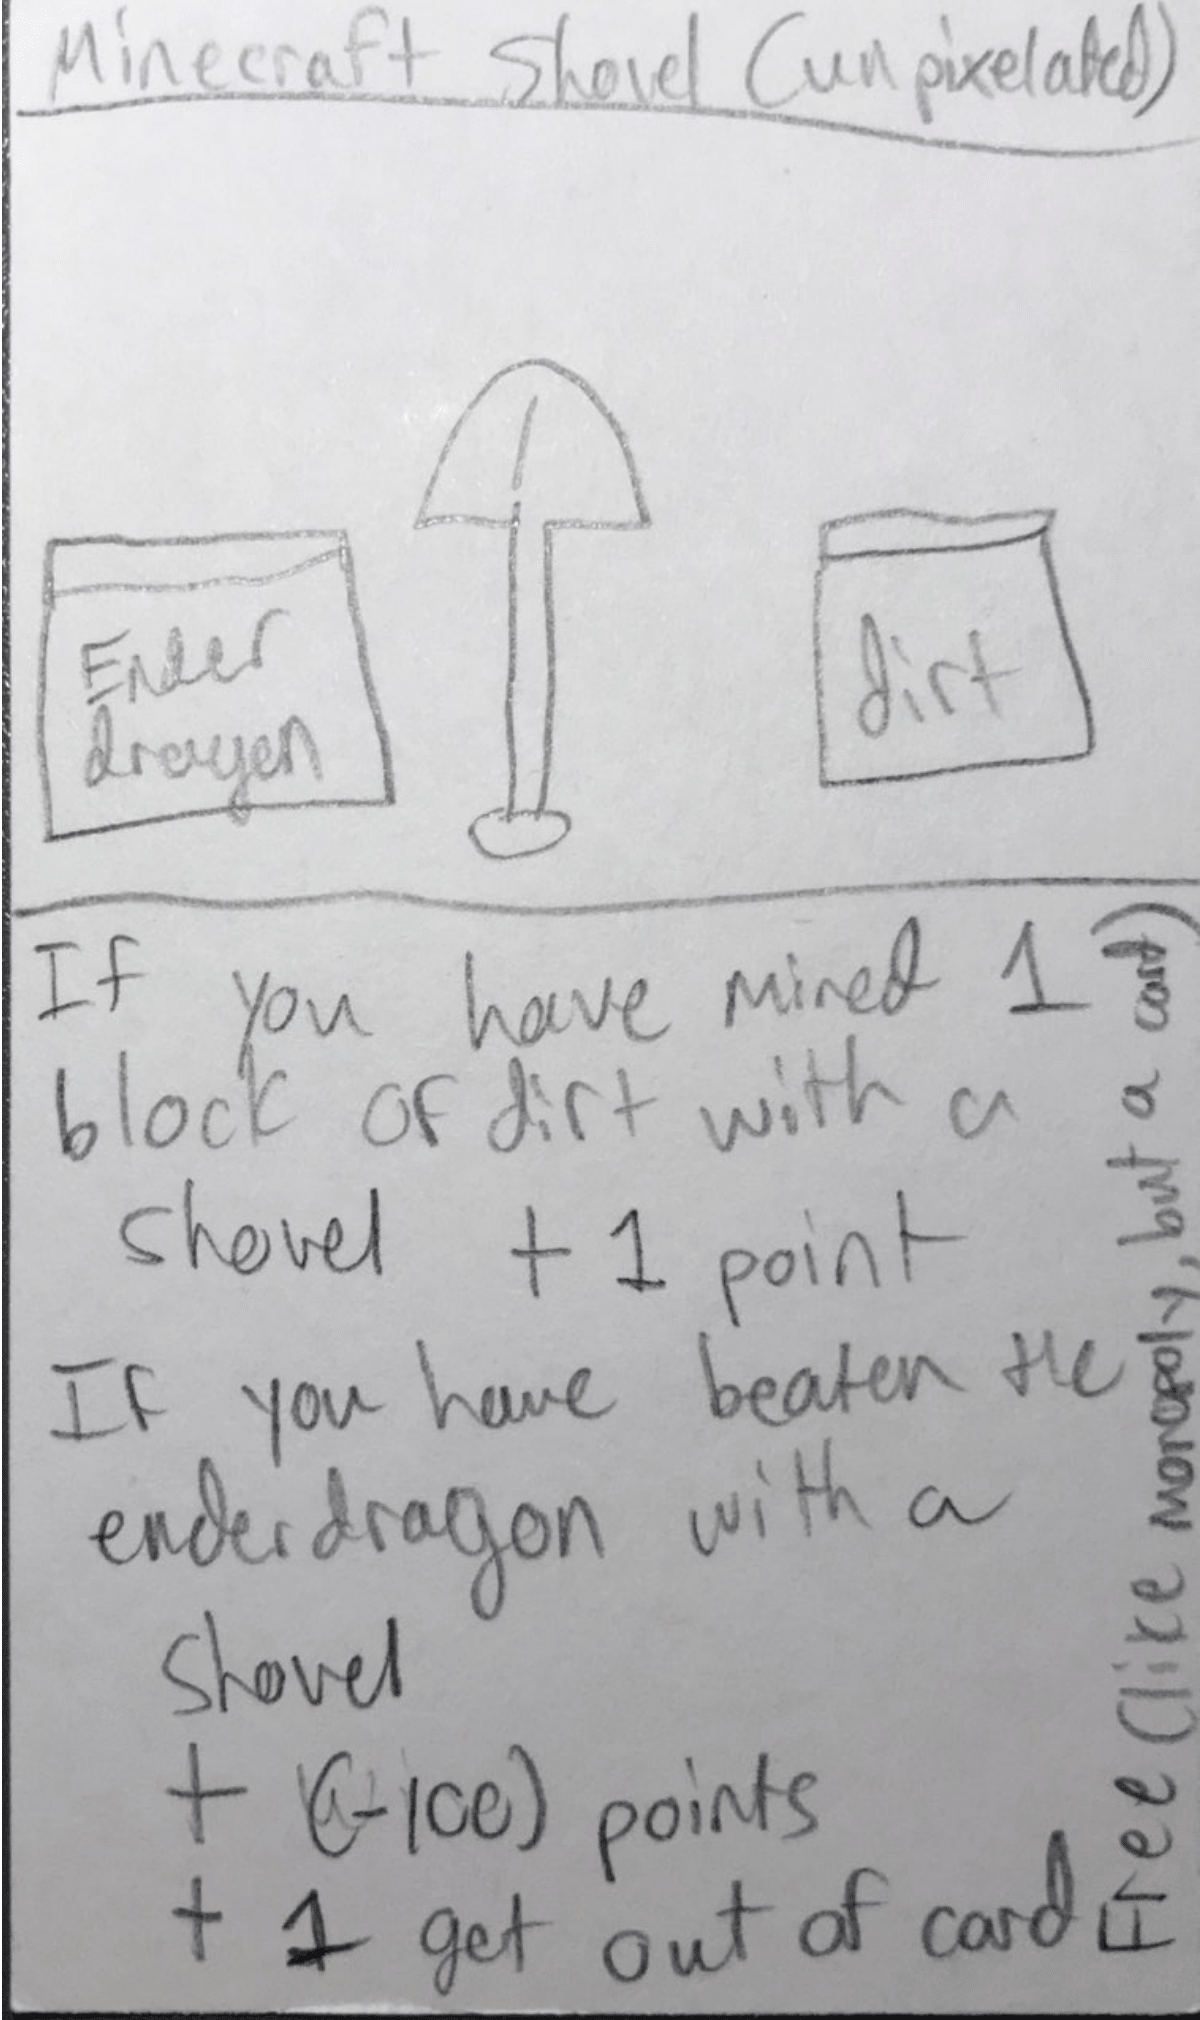 Minecraft Shovel (unpixelated)
Ender
dragon
dirt
If you have mined 1
block of dirt with a
shovel + 1 point
If you have beaten the
enderdragon with a
shovel
+ (-100) points
+ 1 get out of card
Free (like monopoly, but a card)